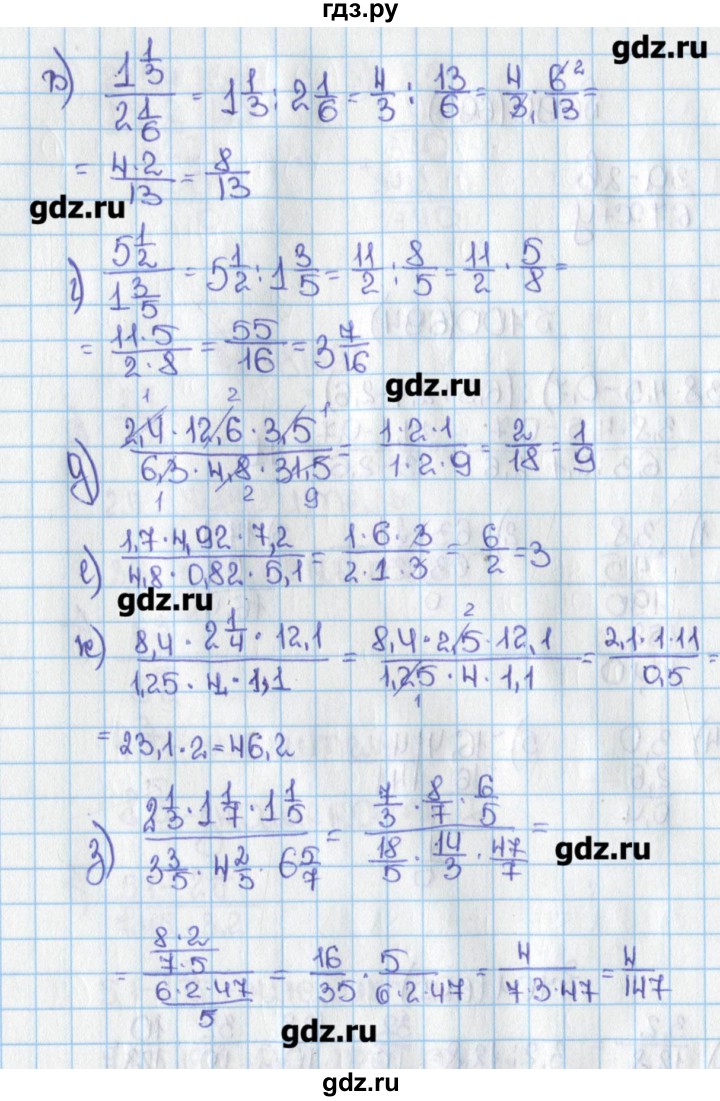 гдз.ру
gdz.ru
в) (1 1/3)/(2 1/6) = 1 1/3 : 2 1/6 = 4/3 : 13/6 = 4/3 · 6/13 2 =
= (4·2)/13 = 8/13
gdz.ru
г) (5 1/2)/(1 3/5) = 5 1/2 : 1 3/5 = 11/2 : 8/5 = 11/2 · 5/8 =
= (11·5)/(2·8) = 55/16 = 3 7/16
gdz.ru
1 2 1
д) (2,4 · 12,6 · 3,5)/(6,3 · 4,8 · 31,5) = (1·2·1)/(1·2·9) = 2/18 = 1/9
1 2 9
е) (1,7 · 4,92 · 7,2)/(4,8 · 0,82 · 5,1) = (1·6·3)/(2·1·3) = 6/2 = 3
gdz.ru
2
ж) (8,4 · 2 1/4 · 12,1)/(1,25 · 4 · 1,1) = (8,4 · 2,5 · 12,1)/(1,25 · 4 · 1,1) = (2,1·1·11)/0,5 =
1
= 23,1·2 = 46,2
з) (2 1/3 · 1 1/7 · 1 1/5)/(3 3/5 · 4 2/5 · 6 5/7) = (7/3 · 8/7 · 6/5)/(18/5 · 14/3 · 47/7) =
gdz.ru
= ((8·2)/(7·5))/((6·2·47)/5) = 16/35 · 5/(6·2·47) = 4/(7·3·47) = 4/147
gdz.ru
gdz.ru